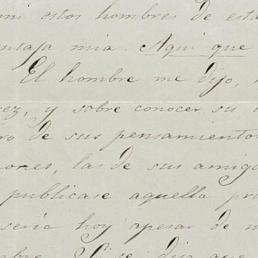 mi estos hombres de esta
entaja mia. Aqui que
El hombre me dijo,
vez, y sobre conocer su
ro de sus pensamientos
ores, las de sus amigo
publicase aquella pro
seria hoy apesar de
bre. Si se dijo que